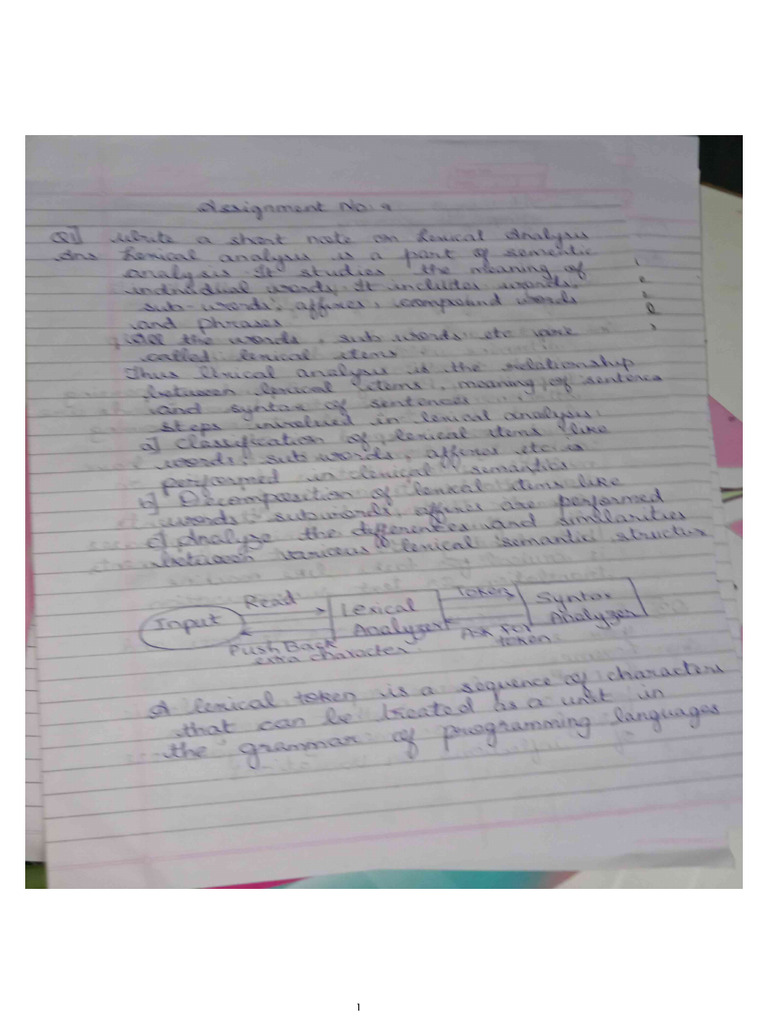 Assignment No. 4
Q1] Write a short note on Lexical Analysis
Ans Lexical analysis is a part of sementic
analysis. It studies the meaning of
individual words. It includes words,
sub-words, affixes, compound words
and phrases
All the words, sub words etc are
called lexical items
Thus lexical analysis is the relationship
between lexical items, meaning of sentence
and syntax of sentences.
Steps involved in lexical analysis:
a] Classification of lexical items like
words, sub words, affixes etc is
performed in lexical semantics
b] Decomposition of lexical items like
words subwords, affixes are performed
c] Analyze the differences and similarities
between various lexical semantic structur
Input
Read
Push Back
extra character
Lexical
Analyzer
Token
Ask for
token
Syntax
Analyzer
A lexical token is a sequence of characters
that can be treated as a unit in
the grammar of programming languages
1